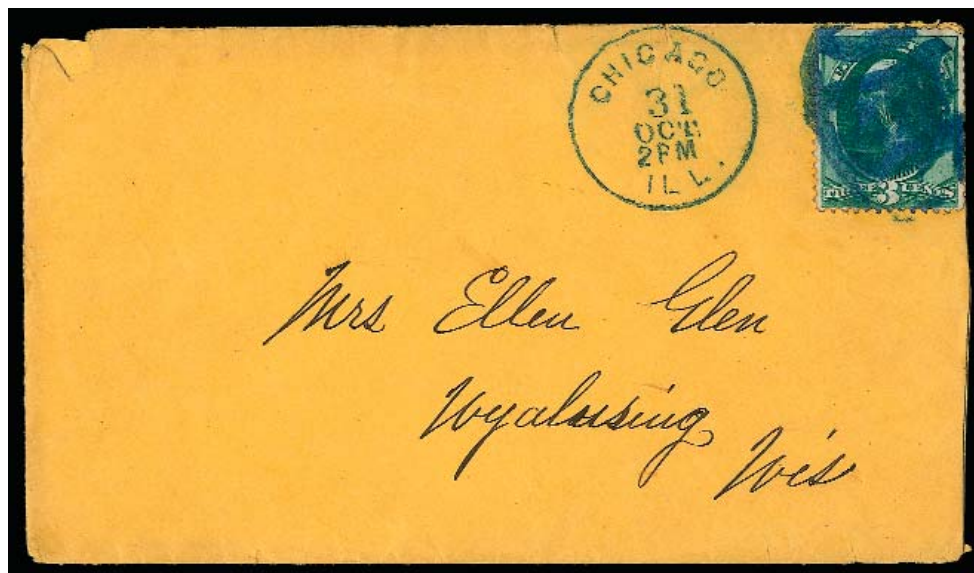 CHICAGO
31
OCT
2 PM
ILL.
THREE 3 CENTS
Mrs Ellen Glen
Wyalusing
Wis